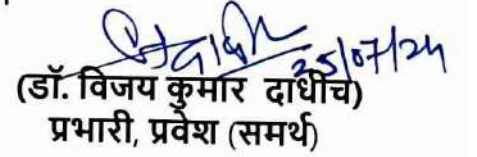 25/07/24
(डॉ. विजय कुमार दाधीच)
प्रभारी, प्रवेश (समर्थ)